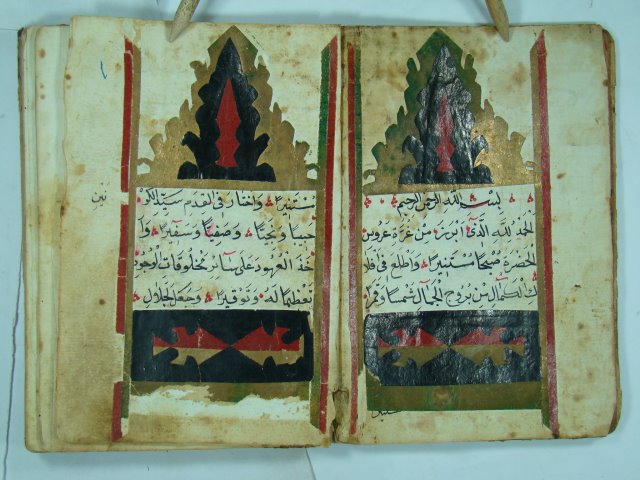 بسم الله الرحمن الرحيم
الحمد لله الذي ابرز من غرة عروس
الحضرة صبحا مستنيرا واطلع في فلا
ك الكمال من بروج الجمال شمسا وقمرا
مستنيرا واختار في القدم سيد الكو
حبيبا ونجيا وصفيا وسفيرا وا
خذ العهود على سائر مخلوقات الوجود
تعظيما له وتوقيرا وجعل الجلال
نين